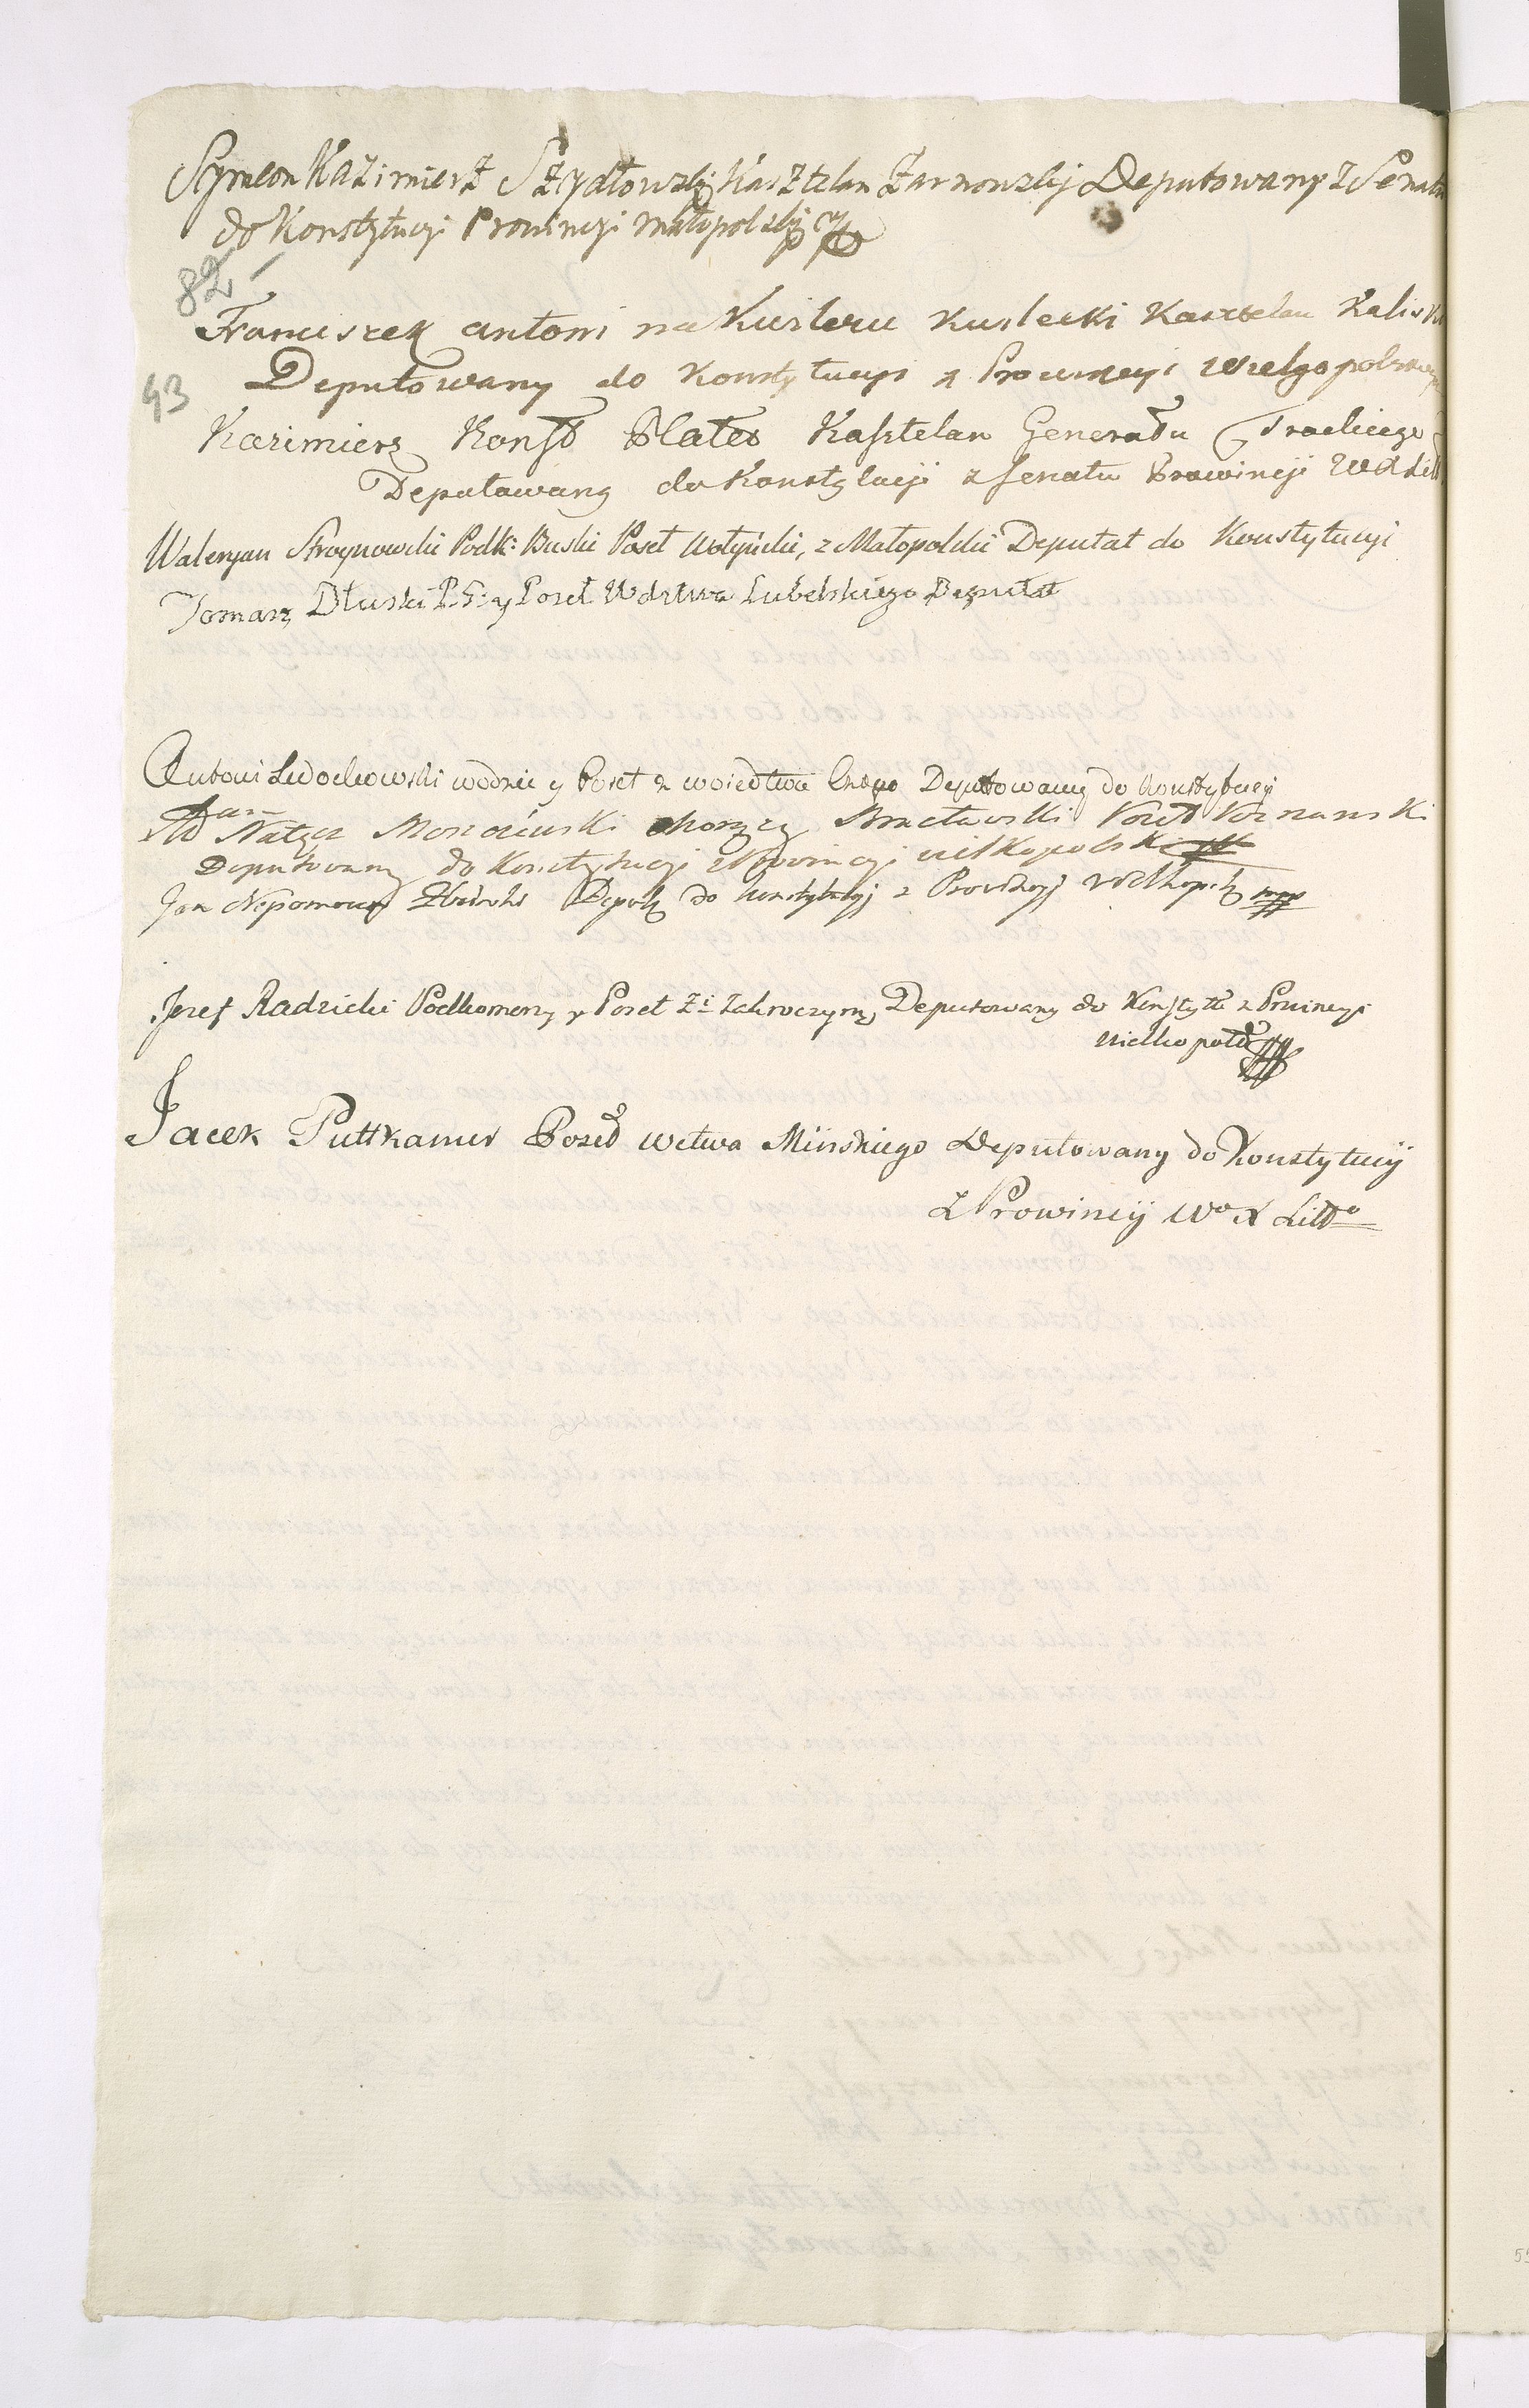 Symeon Kazimierz Szydłowskj Kasztelan Żarnowskj Deputowany z Senatu
do Konstytucyi Prowincyi Małopolskij
82
Franciszek Antoni na Kuśleru Kuslecki Kasztelan Kalisk
43
Deputowany do Konstytucyi z Prowincyi Wielgopolskiey
Kazimierz Konst Plater Kasztelan Generału Trockiego
Deputowany do Konstytucji z Senatu Prowincji W X Litt
Waleryan Stroynowski Podk: Buski Poseł Wołyński, z Małopolski Deputat do Konstytucyi
Tomasz Dłuski P. L: y Poseł Wdztwa Lubelskiego Deputat
Antoni Ledochowski Poseł z Deputowany do Konstytucyi
Jan Nałęcz Morzciewski Chorąży Poseł Poznanski
Deputowany do Konstytucyi z Prowincyi wielkopolski
Jan Nepomucen Zboinski Deput do Konstytucyj z Prowincyj Wielkopol mpp
Jozef Radzicki Podkomorzy y Poseł Zi Zakroczyms, Deputowany do Konstytu z Prwincyi
wielkopol
Jacek Puttkamer Poseł wctwa Minskiego Deputowany do Konstytucyi
z Prowincyi Wo X Littgo